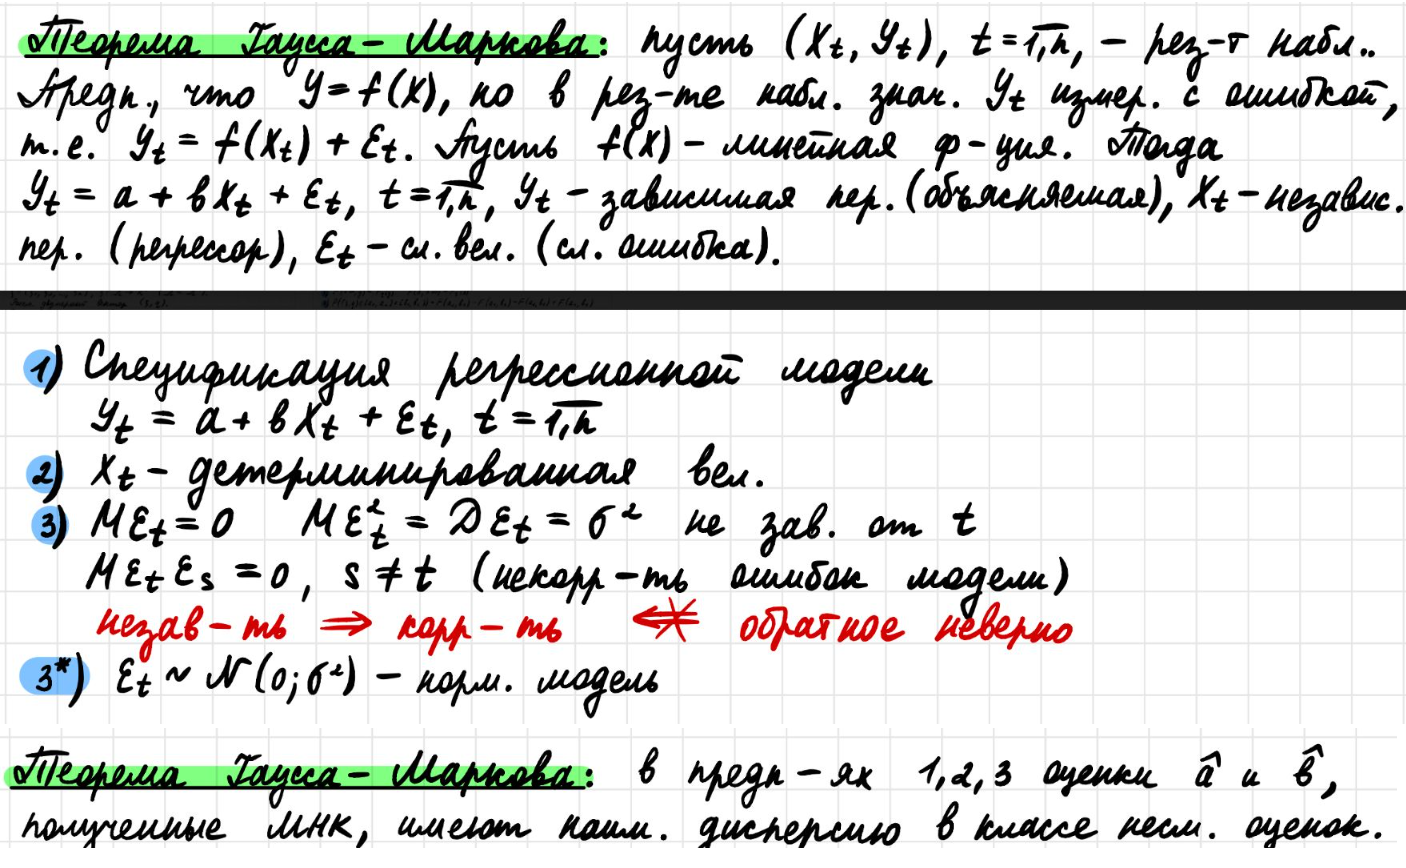 Теорема Гаусса – Маркова: пусть (Xt, Yt), t = 1,n, – рез-т набл..
Предп., что Y = f(X), но в рез-те набл. знач. Yt измер. с ошибкой,
т.е. Yt = f(Xt) + Ɛt. Пусть f(X) – линейная ф-ция. Тогда
Yt = a + bXt + Ɛt, t = 1,n, Yt – зависимая пер. (объясняемая), Xt – независ.
пер. (регрессор), Ɛt – сл. вел. (сл. ошибка).
1) Спецификация регрессионной модели
Yt = a + bXt + Ɛt, t = 1,n
2) Xt – детерминированная вел.
3) MƐt = 0 MƐt² = DƐt = σ² не зав. от t
MƐtƐs = 0, s ≠ t (некорр-ть ошибок модели)
незав-ть ⇒ корр-ть ⇍ обратное неверно
3*) Ɛt ~ N(0; σ²) – норм. модель
Теорема Гаусса – Маркова: в предп-ях 1,2,3 оценки â и b̂,
полученные МНК, имеют наим. дисперсию в классе несм. оценок.